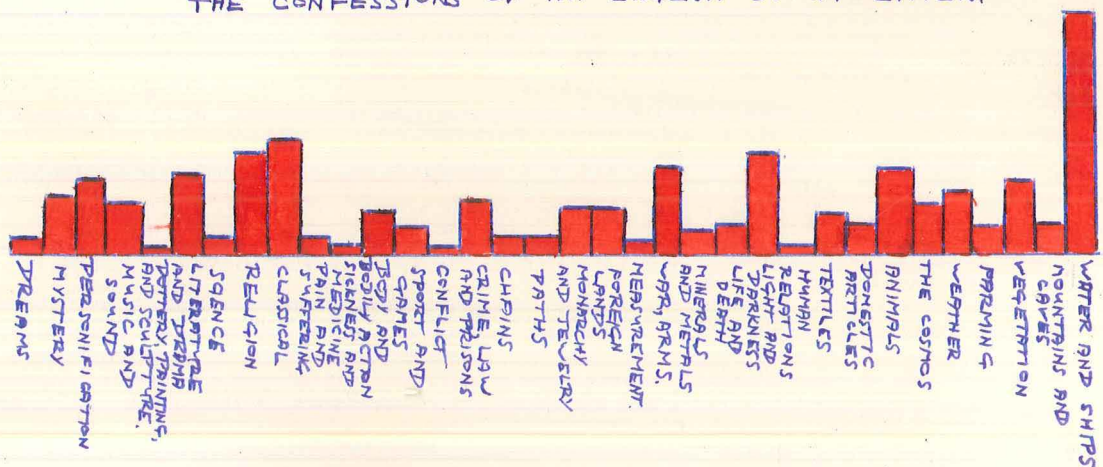 THE CONFESSIONS OF AN
DREAMS
MYSTERY
PERSONIFICATION
MUSIC AND
SOUND
POTTERY, PAINTING,
AND SCULPTURE.
LITERATURE
AND DRAMA
SCIENCE
RELIGION
CLASSICAL
PAIN AND
SUFFERING
SICKNESS AND
MEDICINE
BODY AND
BODILY ACTION
SPORT AND
GAMES
CONFLICT
CRIME, LAW
AND PRISONS
CHAINS
PATHS
MONARCHY
AND JEWELERY
FOREIGN
LANDS
MEASUREMENT.
WAR, ARMS.
MINERALS
AND METALS
LIFE AND
DEATH
LIGHT AND
DARKNESS
HUMAN
RELATIONS
TEXTILES
DOMESTIC
ARTICLES
ANIMALS
THE COSMOS
WEATHER
FARMING
VEGETATION
MOUNTAINS AND
CAVES
WATER AND SHIPS